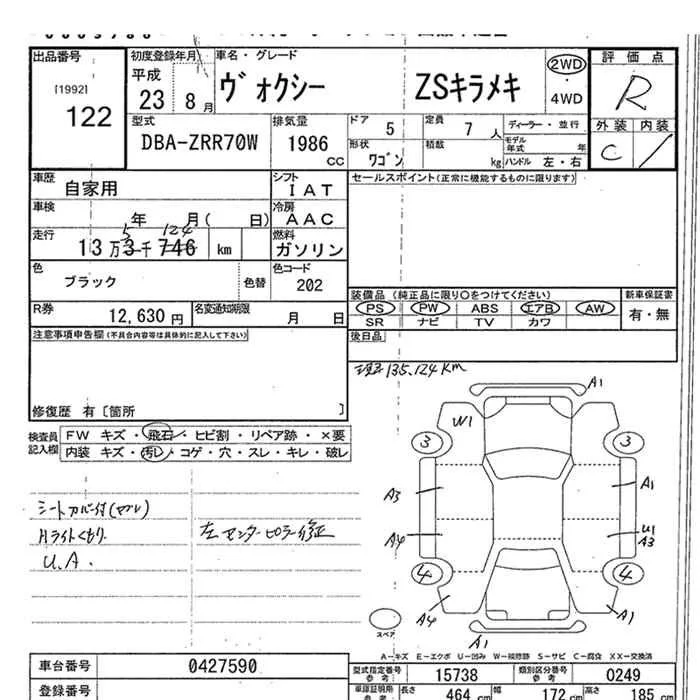 出品番号
[1992]
122
初度登録年月
平成
23 8月
車名・グレード
ヴォクシー ZSキラメキ
2WD
4WD
評価点
R
外装 内装
C
型式
DBA-ZRR70W
排気量
1986
CC
ドア 5
定員 7 人
ディーラー・並行
形状
ワゴン
積載
kg
モデル年式 年
ハンドル 左・右
車歴
自家用
シフト
IAT
セールスポイント(正常に機能するものに限ります)
車検
年 月( 日)
冷房
AAC
走行
13万3千746 km
5 124
燃料
ガソリン
色
ブラック
色替
色コード
202
装備品(純正品に限り○をつけてください)
新車保証書
PS PW ABS エアB AW
有・無
SR ナビ TV カワ
R券
12,630 円
名変通知期限
月 日
後日品
注意事項申告欄(不具合内容等は具体的に記入して下さい)
現 135,124km
修復歴 有[箇所 ]
検査員記入欄
FW キズ・飛石・ヒビ割・リペア跡・×要
内装 キズ・汚レ・コゲ・穴・スレ・キレ・破レ
シートカバー付(セブレ)
Hライトくもり
U.A.
左センターピラー修正
A1
W1
3
3
A3
A1
A4
U1
A3
4
4
A4
A1
スペア
A1
A-キズ E-エクボ U-凹み W-補修跡 S-サビ C-腐食 XX-交換済
車台番号
0427590
型式指定番号
参考
15738
類別区分番号
参考
0249
登録番号
車庫証明用
参考
長さ 464 cm
幅 172 cm
高さ 185 cm